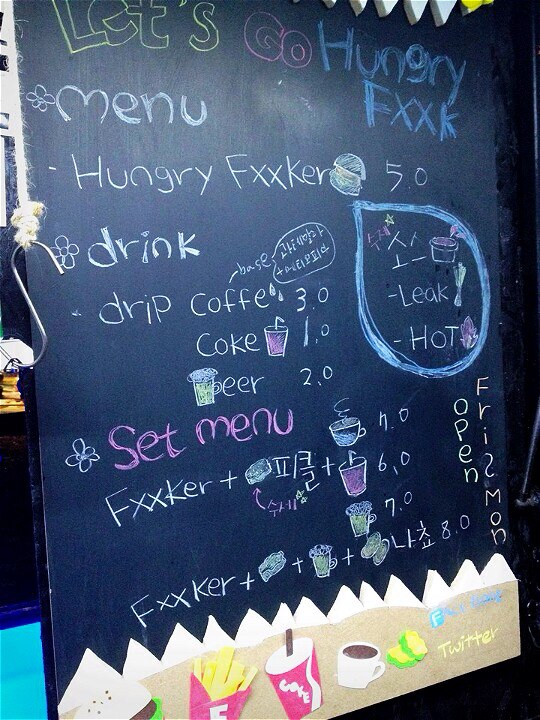 Let's Go Hungry
Fxxk
menu
- Hungry Fxxker 5.0
drink
base 과테말라
+에티오피아
- drip coffe 3.0
Coke 1.0
Beer 2.0
수제 소스
- Leak
- HOT
Set menu
Fxxker + 피클 + 7.0
6.0
수제
7.0
Fxxker + + + 나쵸 8.0
open
Fri~Mon
Twitter
COKE
F